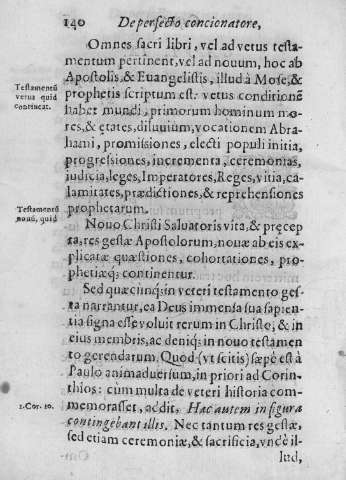 140 De perfecto concionatore,
Omnes sacri libri, vel ad vetus testa-
mentum pertinent, vel ad nouum, hoc ab
Apostolis, & Euangelistis, illud à Mose, &
prophetis scriptum est: vetus conditionē
habet mundi, primorum hominum mo-
res, & etates, diluuium, vocationem Abra-
hami, promissiones, electi populi initia,
progressiones, incrementa, ceremonias,
iudicia, leges, Imperatores, Reges, vitia, ca-
lamitates, prædictiones, & reprehensiones
prophetarum.
Testamentū
vetus quid
contineat.
Nouo Christi Saluatoris vita, & præcep
ta, res gestæ Apostolorum, nouæ ab eis ex-
plicatæ quæstiones, cohortationes, pro-
phetiæq; continentur.
Testamentū
nouū, quid
Sed quæcunq; in veteri testamento ges-
ta narrantur, ea Deus immensa sua sapien-
tia signa esse voluit rerum in Christo, & in
eius membris, ac deniq; in nouo testamen-
to gerendarum. Quod (vt scitis) sæpè est à
Paulo animaduersum, in priori ad Corin-
thios: cum multa de veteri historia com-
memorasset, addit, Hac autem in figura
contingebant illis. Nec tantum res gestæ,
sed etiam ceremoniæ, & sacrificia, vndè il-
lud,
1. Cor. 10.